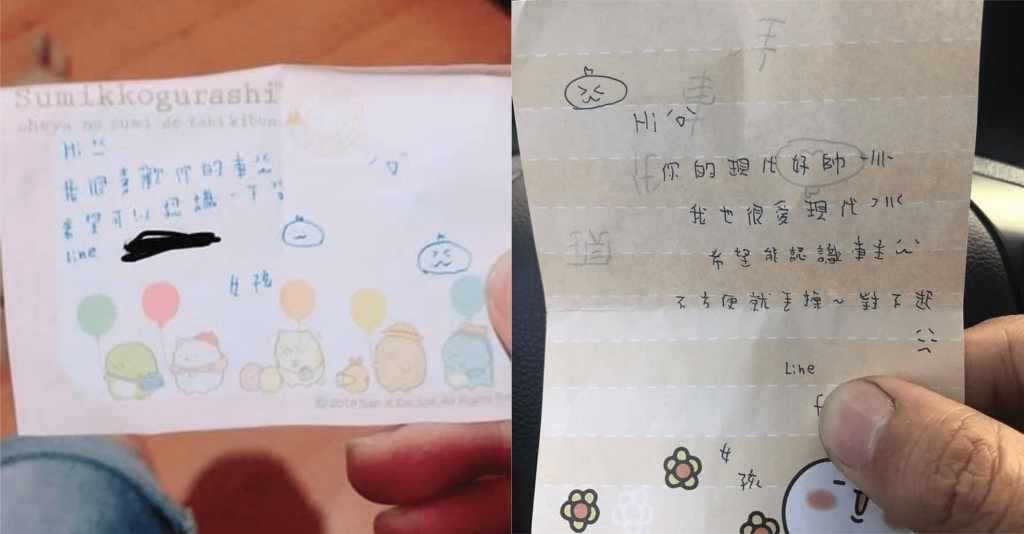 Sumikkogurashi
oheya no sumi de tabi kibun
Hi
我很喜歡你的車
希望可以認識一下
line
女孩
San-X Co., Ltd. All Rights Re
Hi
你的現代好帥
我也很愛現代
希望能認識車主
不方便就丟掉~對不起
Line
女
孩